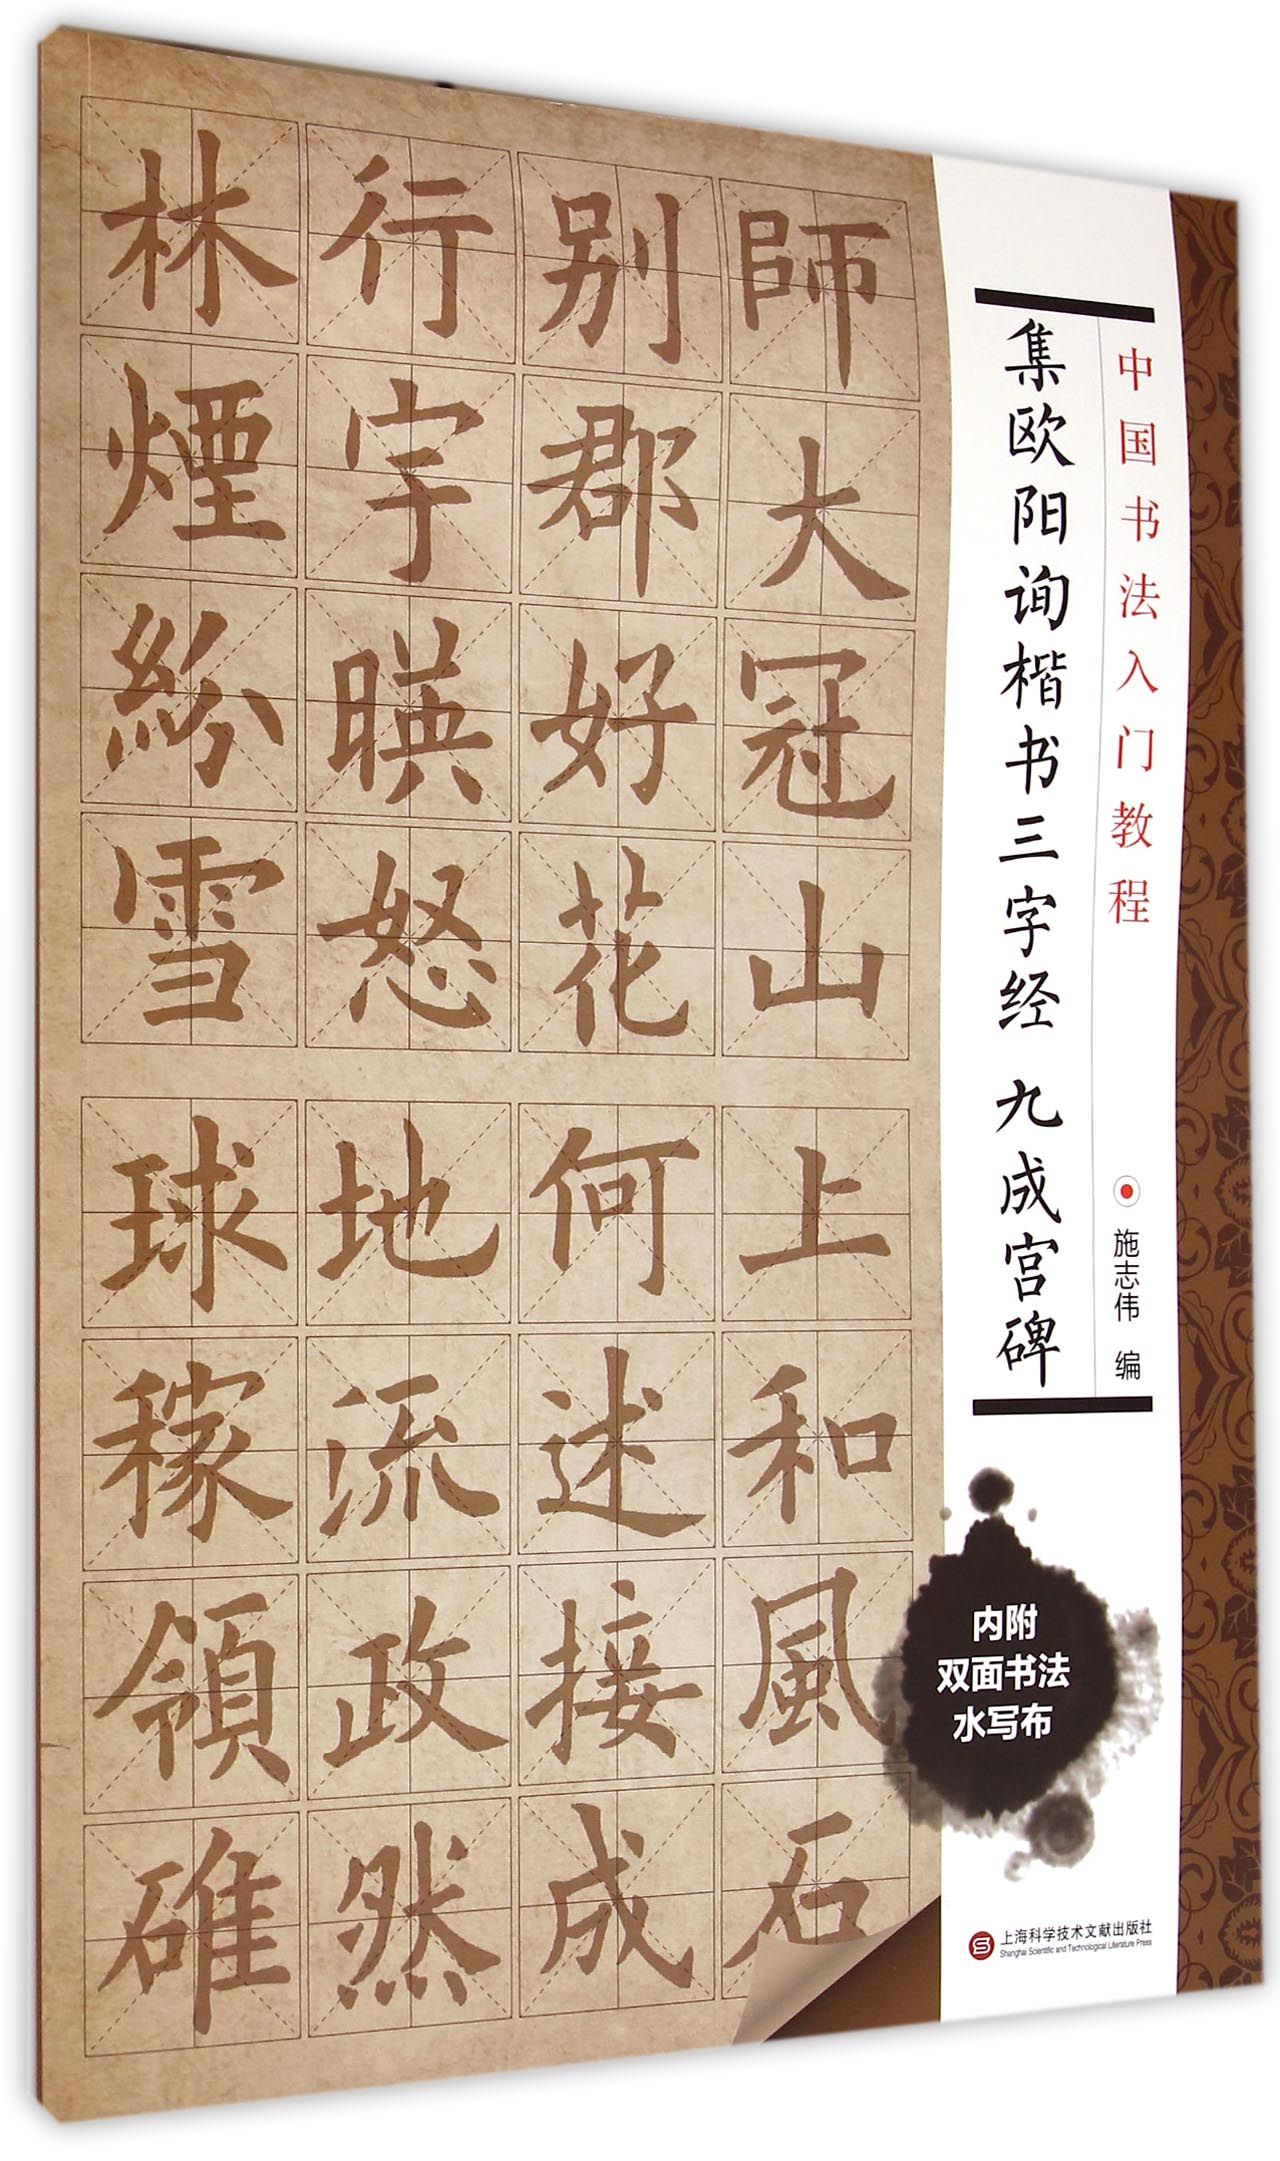 師大冠山
别郡好花
行宇暎怒
林煙紛雪
上和風石
何述接成
地流政然
球稼領碓
中国书法入门教程
集欧阳询楷书三字经 九成宫碑
施志伟 编
内附
双面书法
水写布
上海科学技术文献出版社
Shanghai Scientific and Technological Literature Press